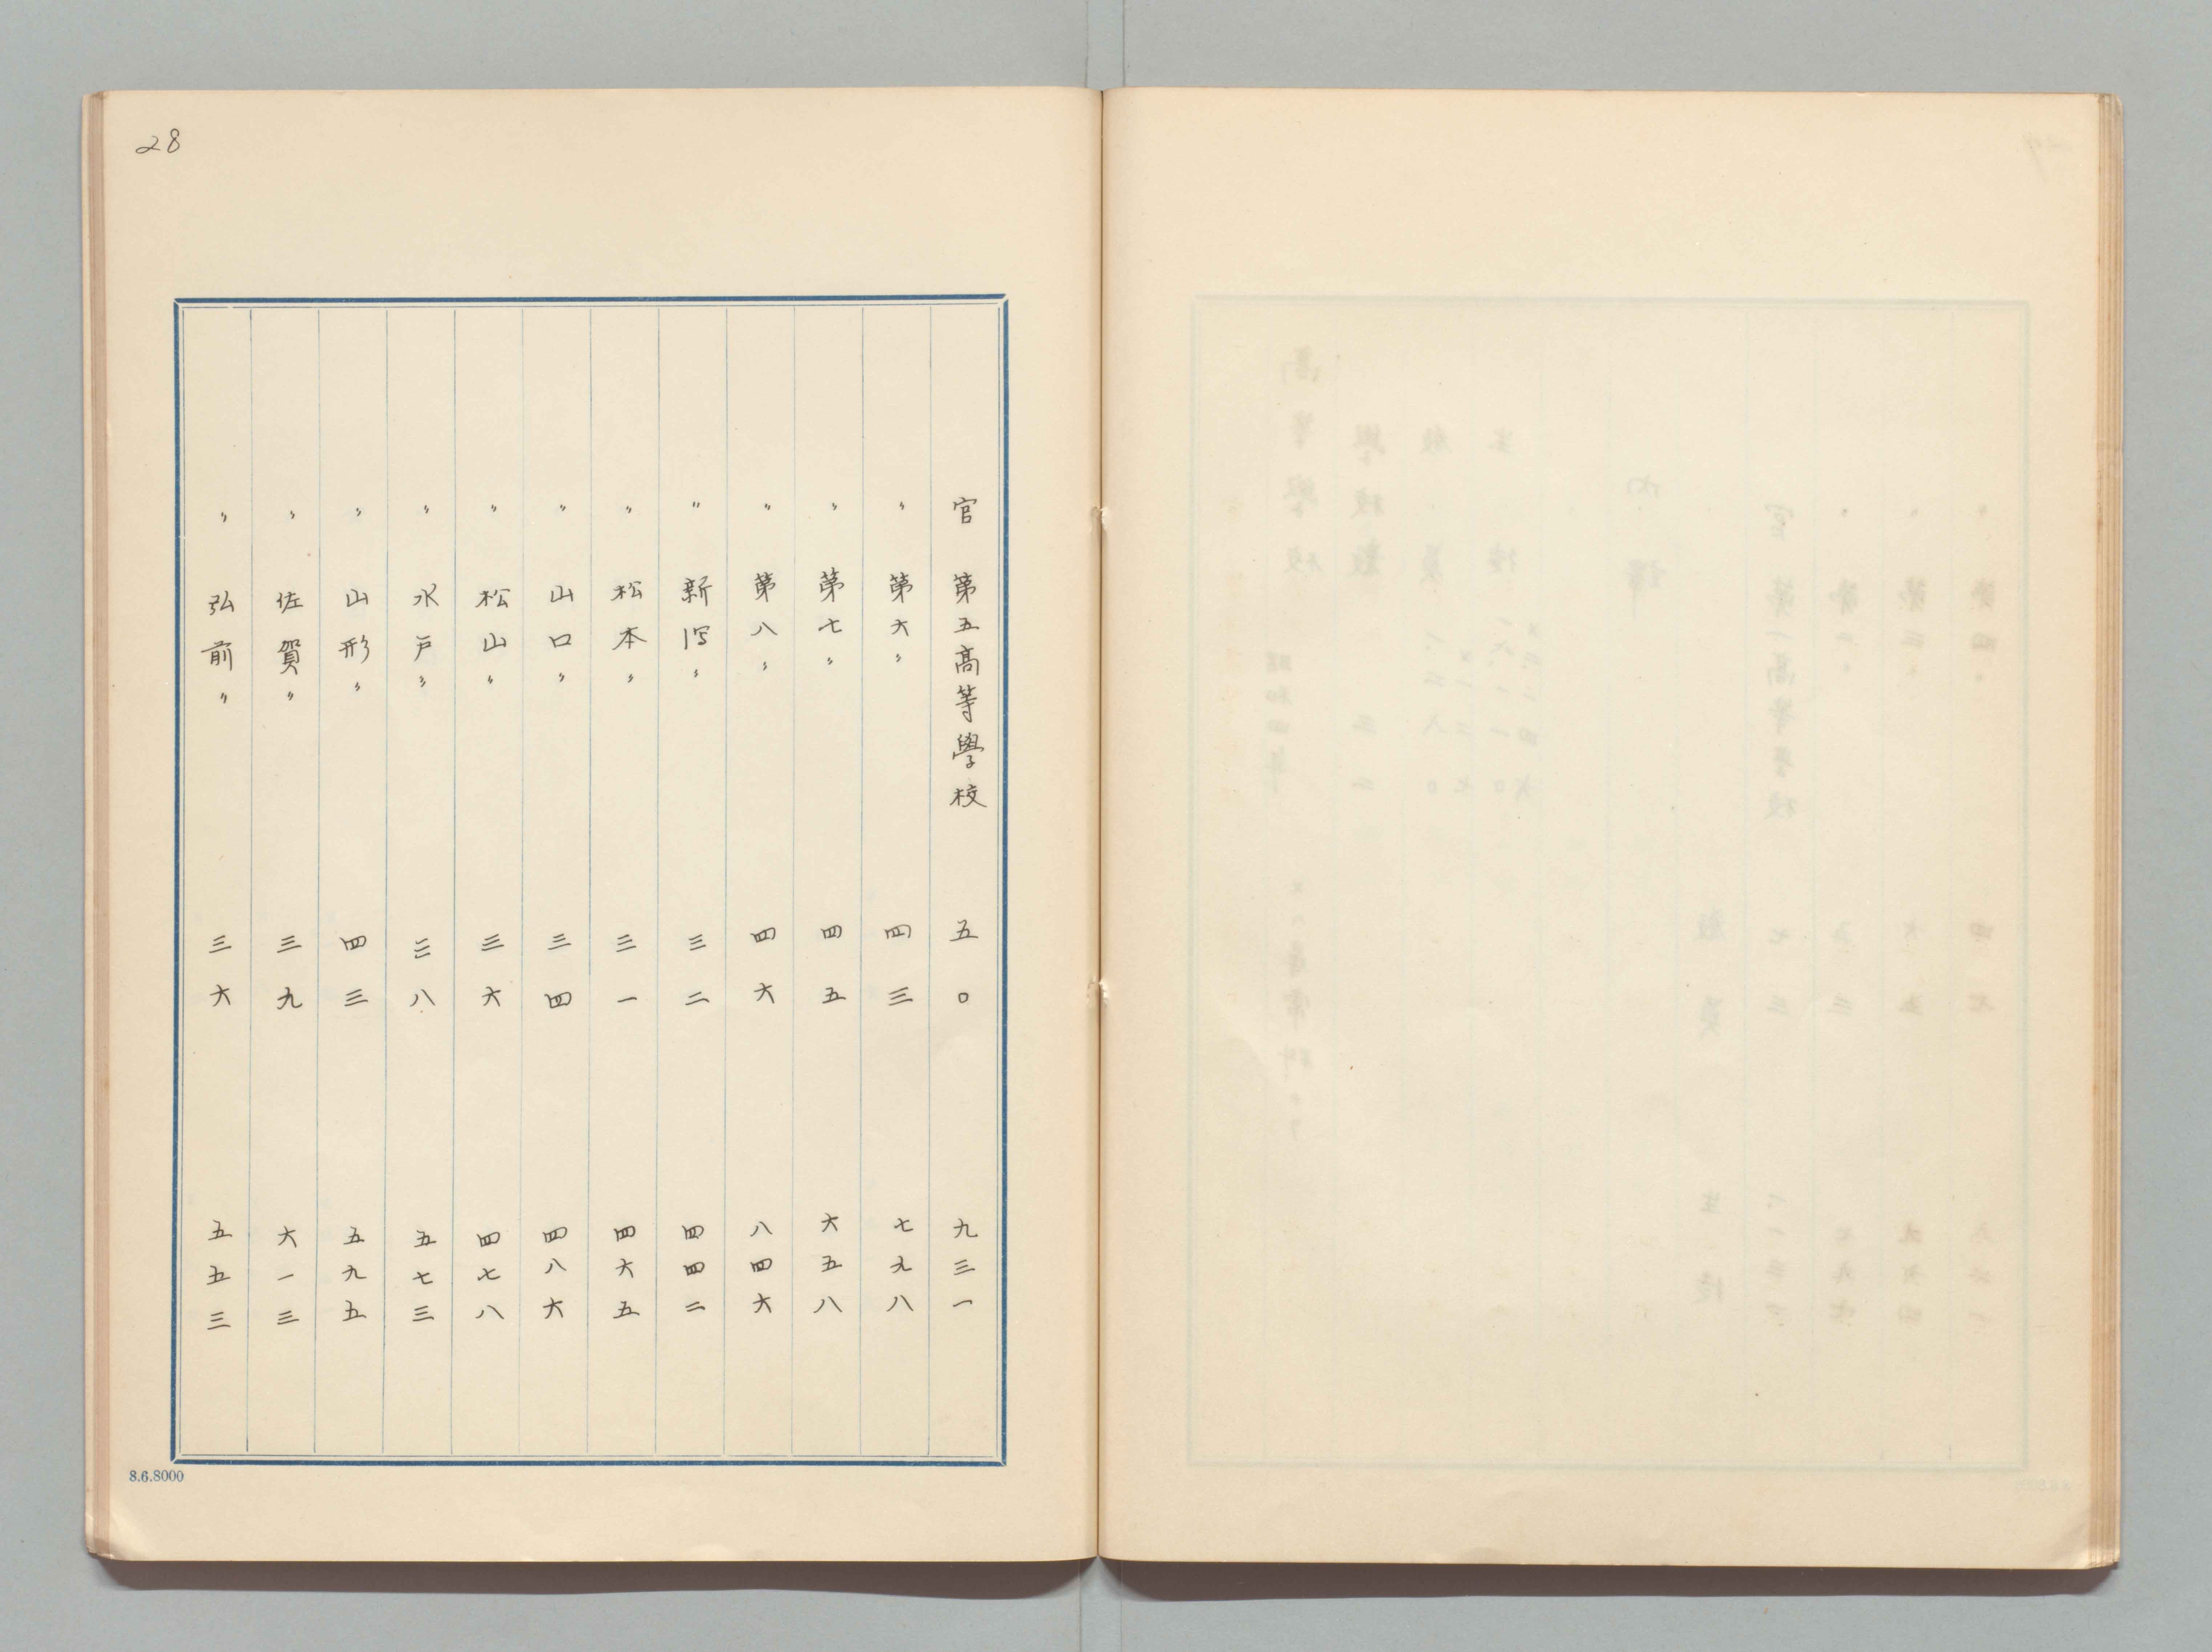 28
官 第五高等學校 五〇 九三一
〃 第六〃 四三 七九八
〃 第七〃 四五 六五八
〃 第八〃 四六 八四六
〃 新写〃 三二 四四二
〃 松本〃 三一 四六五
〃 山口〃 三四 四八六
〃 松山〃 三六 四七八
〃 水戸〃 三八 五七三
〃 山形〃 四三 五九五
〃 佐賀〃 三九 六一三
〃 弘前〃 三六 五五三
8.6.8000